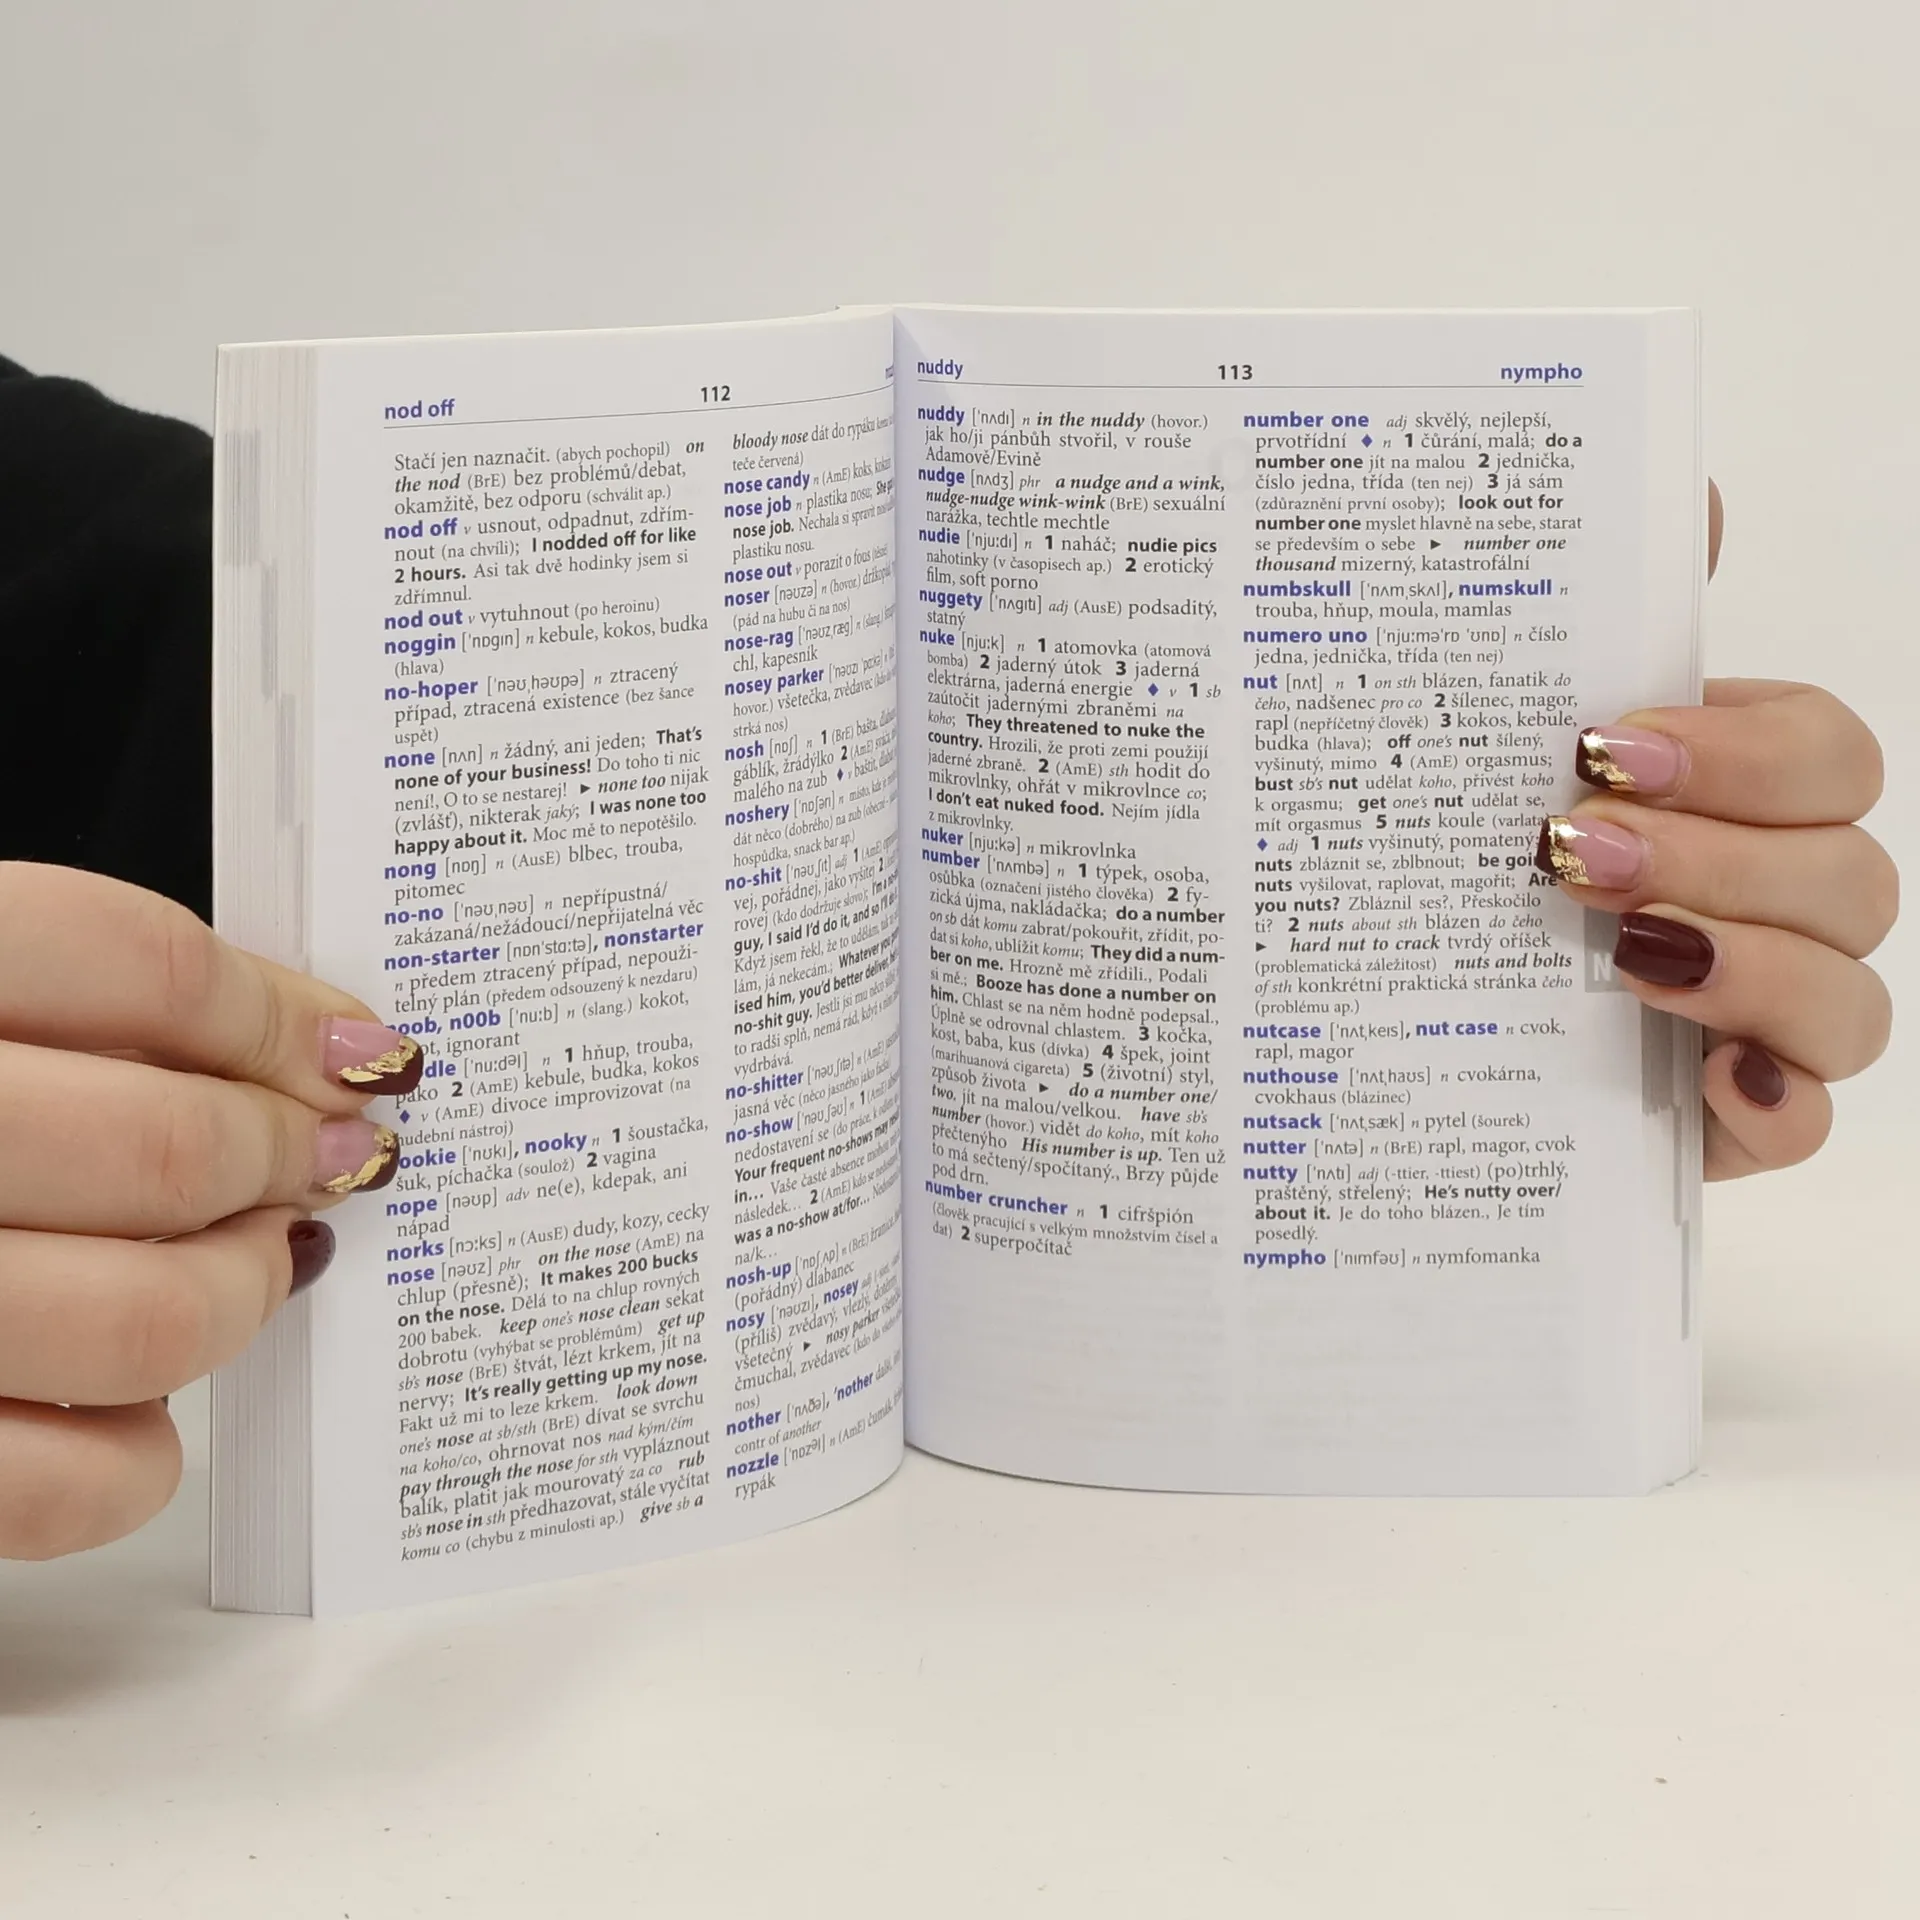 nod off
112
Stačí jen naznačit. (abych pochopil) on
the nod (BrE) bez problémů/debat,
okamžitě, bez odporu (schválit ap.)
nod off v usnout, odpadnut, zdřím-
nout (na chvíli); I nodded off for like
2 hours. Asi tak dvě hodinky jsem si
zdřímnul.
nod out v vytuhnout (po heroinu)
noggin ['nɒgɪn] n kebule, kokos, budka
(hlava)
no-hoper ['nəʊˌhəʊpə] n ztracený
případ, ztracená existence (bez šance
uspět)
none [nʌn] n žádný, ani jeden; That's
none of your business! Do toho ti nic
není!, O to se nestarej! ► none too nijak
(zvlášť), nikterak jaký; I was none too
happy about it. Moc mě to nepotěšilo.
nong [nɒŋ] n (AusE) blbec, trouba,
pitomec
no-no ['nəʊˌnəʊ] n nepřípustná/
zakázaná/nežádoucí/nepřijatelná věc
non-starter [nɒn'stɑːtə], nonstarter
n předem ztracený případ, nepouži-
telný plán (předem odsouzený k nezdaru)
noob, n00b ['nuːb] n (slang.) kokot,
ignorant
['nuːdəl] n 1 hňup, trouba,
pako 2 (AmE) kebule, budka, kokos
♦ v (AmE) divoce improvizovat (na
hudební nástroj)
['nʊkɪ], nooky n 1 šoustačka,
šuk, píchačka (soulož) 2 vagina
nope [nəʊp] adv ne(e), kdepak, ani
nápad
norks [nɔːks] n (AusE) dudy, kozy, cecky
nose [nəʊz] phr on the nose (AmE) na
chlup (přesně); It makes 200 bucks
on the nose. Dělá to na chlup rovných
200 babek. keep one's nose clean sekat
dobrotu (vyhýbat se problémům) get up
sb's nose (BrE) štvát, lézt krkem, jít na
nervy; It's really getting up my nose.
Fakt už mi to leze krkem. look down
one's nose at sb/sth (BrE) dívat se svrchu
na koho/co, ohrnovat nos nad kým/čím
pay through the nose for sth vypláznout
balík, platit jak mourovatý za co rub
sb's nose in sth předhazovat, stále vyčítat
komu co (chybu z minulosti ap.) give sb a
bloody nose dát do rypáku
teče červená)
nose candy n (AmE) koks,
nose job n plastika nosu;
nose job. Nechala si spravit
plastiku nosu.
nose out v porazit o fous
noser [nəʊzə] n (hovor.)
(pád na hubu či na nos)
nose-rag ['nəʊzˌræg] n (slang.)
chl, kapesník
nosey parker
hovor.) všetečka, zvědavec
strká nos)
nosh [nɒʃ] n 1 (BrE) bašta,
gáblík, žrádýlko 2 (AmE)
malého na zub ♦ v baštit,
noshery ['nɒʃən] n místo, kde
dát něco (dobrého) na zub
hospůdka, snack bar ap.)
no-shit ['nəʊˌʃɪt] adj 1 (AmE)
vej, pořádnej, jako vyšitej 2
rovej (kdo dodržuje slovo);
guy, I said I'd do it, and so I'll
Když jsem řekl, že to udělám,
lám, já nekecám.; Whatever you
ised him, you'd better deliver,
no-shit guy. Jestli jsi mu něco
to radši splň, nemá rád, když
vydrbává.
no-shitter ['nəʊˌʃɪtə] n (AmE)
jasná věc (něco jasného jako facka)
no-show ['nəʊˌʃəʊ] n 1 (AmE)
nedostavení se (do práce, k
Your frequent no-shows may
in... Vaše časté absence mohou
následek... 2 (AmE) kdo se
was a no-show at/for...
na/k...
nosh-up ['nɒʃˌʌp] n (BrE)
(pořádný) dlabanec
nosy ['nəʊzɪ], nosey adj
(příliš) zvědavý, vlezlý,
všetečný ► nosy parker
čmuchal, zvědavec (kdo do
nos)
nother ['nʌðə], 'nother další,
contr of another
nozzle ['nɒzəl] n (AmE) čumák,
rypák
nuddy
113
nympho
nuddy ['nʌdɪ] n in the nuddy (hovor.)
jak ho/ji pánbůh stvořil, v rouše
Adamově/Evině
nudge [nʌdʒ] phr a nudge and a wink,
nudge-nudge wink-wink (BrE) sexuální
narážka, techtle mechtle
nudie ['njuːdɪ] n 1 naháč; nudie pics
nahotinky (v časopisech ap.) 2 erotický
film, soft porno
nuggety ['nʌgɪtɪ] adj (AusE) podsaditý,
statný
nuke [njuːk] n 1 atomovka (atomová
bomba) 2 jaderný útok 3 jaderná
elektrárna, jaderná energie ♦ v 1 sb
zaútočit jadernými zbraněmi na
koho; They threatened to nuke the
country. Hrozili, že proti zemi použijí
jaderné zbraně. 2 (AmE) sth hodit do
mikrovlnky, ohřát v mikrovlnce co;
I don't eat nuked food. Nejím jídla
z mikrovlnky.
nuker [njuːkə] n mikrovlnka
number ['nʌmbə] n 1 týpek, osoba,
osůbka (označení jistého člověka) 2 fy-
zická újma, nakládačka; do a number
on sb dát komu zabrat/pokouřit, zřídit, po-
dat si koho, ublížit komu; They did a num-
ber on me. Hrozně mě zřídili., Podali
si mě.; Booze has done a number on
him. Chlast se na něm hodně podepsal.,
Úplně se odrovnal chlastem. 3 kočka,
kost, baba, kus (dívka) 4 špek, joint
(marihuanová cigareta) 5 (životní) styl,
způsob života ► do a number one/
two, jít na malou/velkou. have sb's
number (hovor.) vidět do koho, mít koho
přečtenýho His number is up. Ten už
to má sečtený/spočítaný., Brzy půjde
pod drn.
number cruncher n 1 cifršpión
(člověk pracující s velkým množstvím čísel a
dat) 2 superpočítač
number one adj skvělý, nejlepší,
prvotřídní ♦ n 1 čůrání, malá; do a
number one jít na malou 2 jednička,
číslo jedna, třída (ten nej) 3 já sám
(zdůraznění první osoby); look out for
number one myslet hlavně na sebe, starat
se především o sebe ► number one
thousand mizerný, katastrofální
numbskull ['nʌmˌskʌl], numskull n
trouba, hňup, moula, mamlas
numero uno ['njuːmə'rɒ 'ʊnɒ] n číslo
jedna, jednička, třída (ten nej)
nut [nʌt] n 1 on sth blázen, fanatik do
čeho, nadšenec pro co 2 šílenec, magor,
rapl (nepříčetný člověk) 3 kokos, kebule,
budka (hlava); off one's nut šílený,
vyšinutý, mimo 4 (AmE) orgasmus;
bust sb's nut udělat koho, přivést koho
k orgasmu; get one's nut udělat se,
mít orgasmus 5 nuts koule (varlata)
♦ adj 1 nuts vyšinutý, pomatený;
nuts zbláznit se, zblbnout; be
nuts vyšilovat, raplovat, magořit; Are
you nuts? Zbláznil ses?, Přeskočilo
ti? 2 nuts about sth blázen do čeho
► hard nut to crack tvrdý oříšek
(problematická záležitost) nuts and bolts
of sth konkrétní praktická stránka čeho
(problému ap.)
nutcase ['nʌtˌkeɪs], nut case n cvok,
rapl, magor
nuthouse ['nʌtˌhaʊs] n cvokárna,
cvokhaus (blázinec)
nutsack ['nʌtˌsæk] n pytel (šourek)
nutter ['nʌtə] n (BrE) rapl, magor, cvok
nutty ['nʌtɪ] adj (-ttier, -ttiest) (po)trhlý,
praštěný, střelený; He's nutty over/
about it. Je do toho blázen., Je tím
posedlý.
nympho ['nɪmfəʊ] n nymfomanka
N